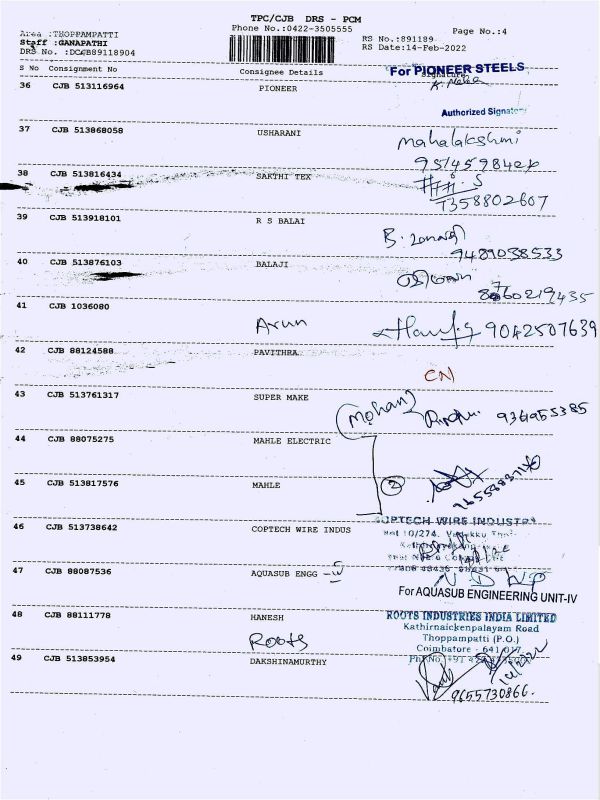 TPC/CJB DRS - PCM
Area :THOPPAMPATTI
Phone No.:0422-3505555
Page No.:4
Staff :GANAPATHI
RS No.:891189
DRS No. :DCJB89118904
RS Date:14-Feb-2022
S No Consignment No Consignee Details Signature
For PIONEER STEELS
36 CJB 513116964 PIONEER
Authorized Signatory
37 CJB 513868058 USHARANI
Mahalakshmi
38 CJB 513816434 SAKTHI TEX
7358802607
39 CJB 513918101 R S BALAI
9489038533
40 CJB 513876103 BALAJI
41 CJB 1036080
Arun 9042507639
42 CJB 88124588 PAVITHRA
CN
43 CJB 513761317 SUPER MAKE
Mohan
44 CJB 88075275 MAHLE ELECTRIC
2
45 CJB 513817576 MAHLE
46 CJB 513738642 COPTECH WIRE INDUS
COPTECH WIRE INDUSTRY
47 CJB 88087536 AQUASUB ENGG
For AQUASUB ENGINEERING UNIT-IV
48 CJB 88111778 HANESH
ROOTS INDUSTRIES INDIA LIMITED
Kathirnaickenpalayam Road
Roots
Thoppampatti (P.O.)
Coimbatore - 641 017
49 CJB 513853954 DAKSHINAMURTHY
9655730866.